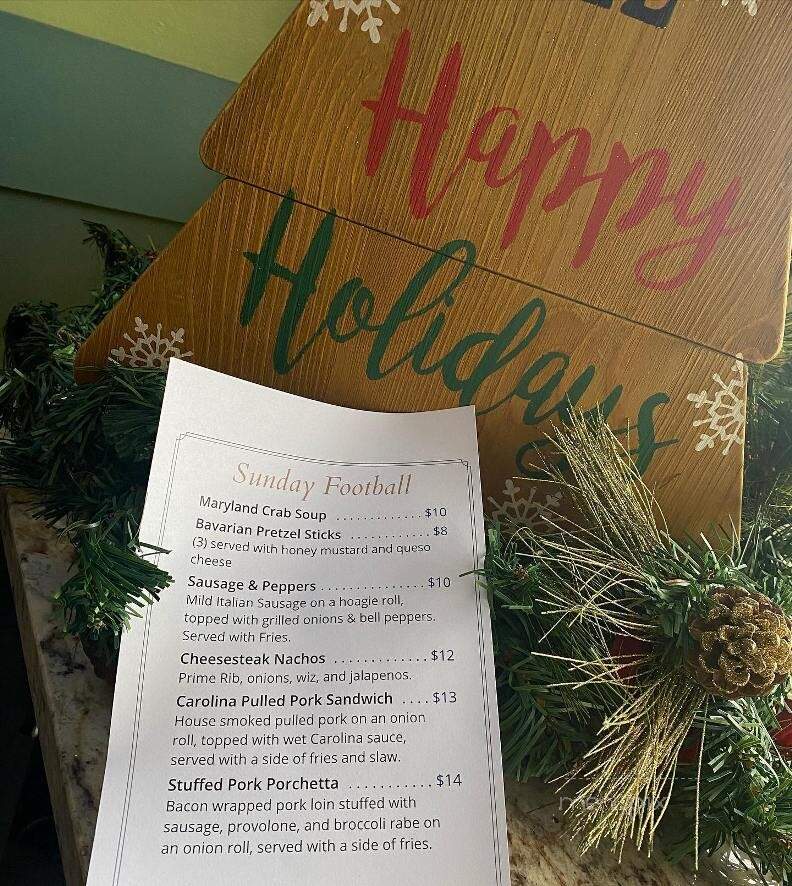 Happy
Holidays
Sunday Football
Maryland Crab Soup ............. $10
Bavarian Pretzel Sticks ............... $8
(3) served with honey mustard and queso
cheese
Sausage & Peppers ................ $10
Mild Italian Sausage on a hoagie roll,
topped with grilled onions & bell peppers.
Served with Fries.
Cheesesteak Nachos ............. $12
Prime Rib, onions, wiz, and jalapenos.
Carolina Pulled Pork Sandwich .... $13
House smoked pulled pork on an onion
roll, topped with wet Carolina sauce,
served with a side of fries and slaw.
Stuffed Pork Porchetta ........... $14
Bacon wrapped pork loin stuffed with
sausage, provolone, and broccoli rabe on
an onion roll, served with a side of fries.